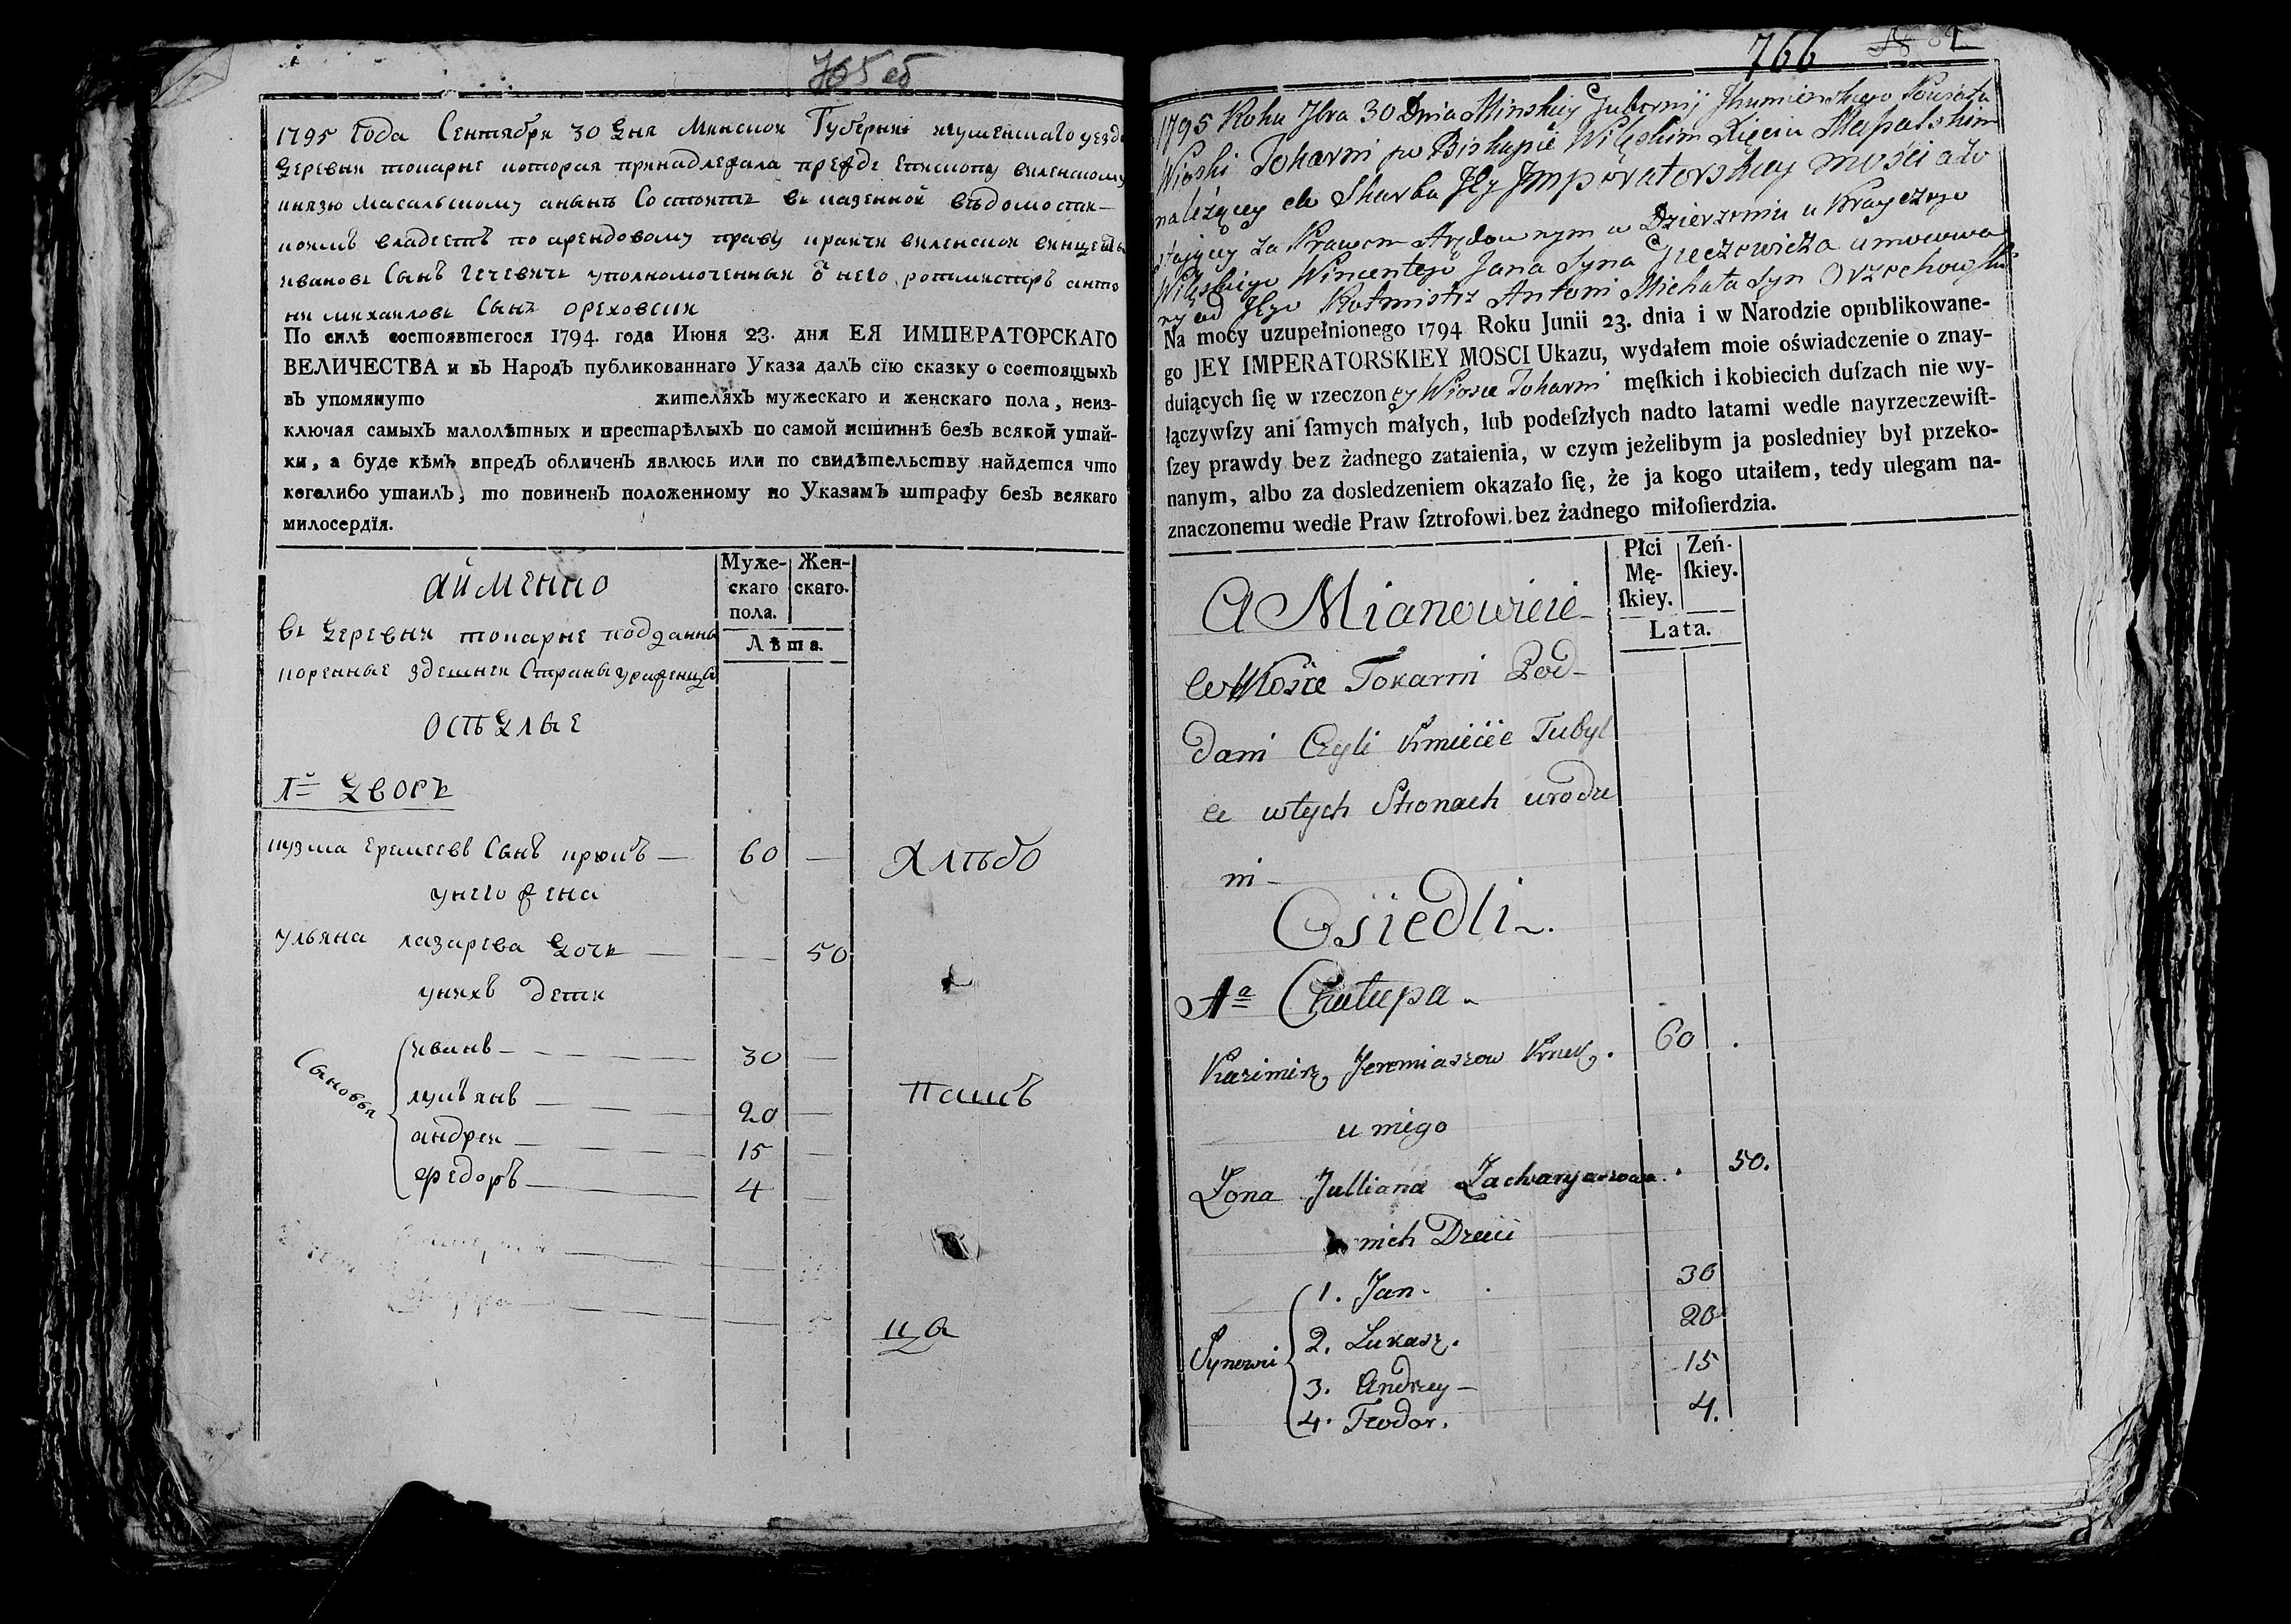 765 об
1795 года Сентября 30 дня Минской Губернии игуменшаго уезда
деревня токарне которая принадлежала прежде Епископу виленскому
князю масальскому анынѣ Состоитъ в казенной ведомости
коимъ владеетъ по арендовому праву крайчи виленскои винцентъ
иванове Сынъ гечевиче уполномоченныи о него ротмистръ анто
ни михаилове Сынъ ореховски
По силѣ состоявшегося 1794. года Июня 23. дня ЕЯ ИМПЕРАТОРСКАГО
ВЕЛИЧЕСТВА и въ Народъ публикованнаго Указа далъ сїю сказку о состоящыхъ
въ упомянуто жителяхъ мужескаго и женскаго пола, неиз-
ключая самыхъ малолѣтных и престарѣлыхъ по самой истиннѣ безъ всякой утай-
ки, а буде кѣмъ впредъ обличенъ явлюсь или по свидѣтельству найдется что
коголибо утаилъ, то повиненъ положенному по Указамъ штрафу безъ всякаго
милосердїя.
Муже-
скаго
пола.
Жен-
скаго.
Лѣта.
аименно
вь деревни токарне подданны
коренные здешнеи Страны уроженцы
оседлые
1й дворъ
кузма еремеевъ Сынъ крюкъ — 60 —
унего жена
ульяна лазарева дочь — — 50
унихъ дети
Сыновья
иванъ — 30 —
лукъянъ — 20 —
андреи — 15 —
федоръ — 4 —
Хлѣбо
пашъ
цы
766
1795 Roku 7bra 30 Dnia Minskiey Gubernij Jhumienskiego Powiatu
Wioski Tokarni po Biskupie Wileńskim Xięciu Massalskim
należącey do Skarbu Jey Imperatorskiey mości a zo
stającey za Prawem Arędownym w Dzierzeniu u Krayczego
Wileńskiego Wincentego Jana Syna Gieczewicza umocowa
ny od Jego Rotmistrz Antoni Michała Syn Orzechowski
Na mocy uzupełnionego 1794 Roku Junii 23. dnia i w Narodzie opublikowane-
go JEY IMPERATORSKIEY MOSCI Ukazu, wydałem moie oświadczenie o znay-
duiących ſię w rzeczon ey Wiosce Tokarni męſkich i kobiecich duſzach nie wy-
łączywſzy ani ſamych małych, lub podeſzłych nadto latami wedle nayrzeczewiſt-
ſzey prawdy bez żadnego zataienia, w czym jeżelibym ja posledniey był przeko-
nanym, albo za dosledzeniem okazało ſię, że ja kogo utaiłem, tedy ulegam na-
znaczonemu wedle Praw ſztrofowi bez żadnego miłoſierdzia.
Płci
Mę-
ſkiey.
Zeń-
ſkiey.
Lata.
A Mianowicie
w Wiosce Tokarni Pod-
dani Czyli Kmiecie Tubyl
ce wtych Stronach urodze
ni
Osiedli
1a Chałupa
Kazimirz Jeremiaszow Kruk. 60 .
u niego
Zona Julliana Zacharyaszowa . 50.
u nich Dzieci
Synowi
1. Jan. 30
2. Lukasz. 20
3. Andrzey 15
4. Teodor. 4.